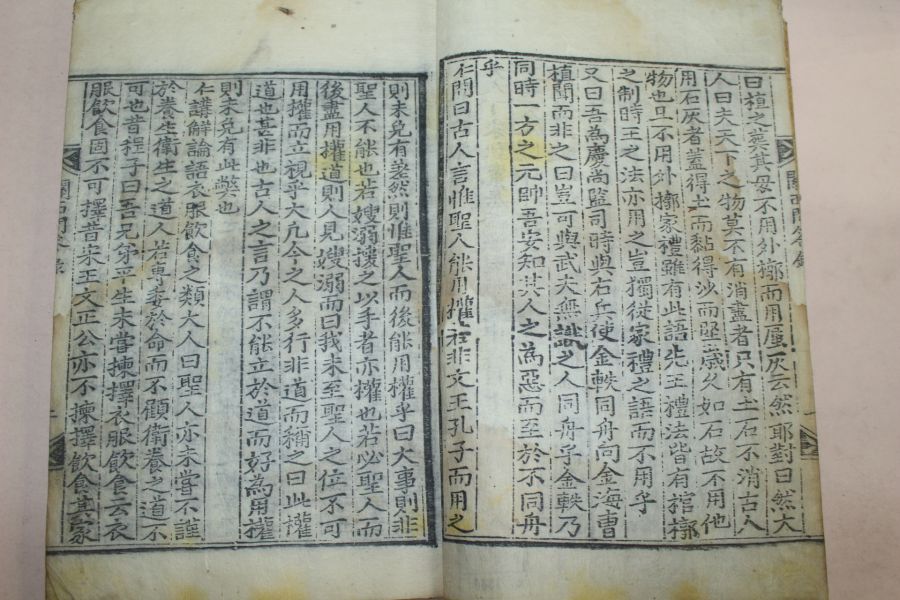 曰植之葬其母不用外槨而用蜃灰云然耶對曰然大
人曰夫天下之物莫不有消盡者只有土石不消古人
用石灰者蓋得土而黏得沙而堅歲久如石故不用他
物也且不用外槨家禮雖有此語先王禮法皆有棺槨
之制時王之法亦用之豈獨從家禮之語而不用乎
又曰吾為慶尚監司時與右兵使金軼同舟向金海曹
植聞而非之曰豈可與武夫無
之人同舟乎金軼乃
同時一方之元帥吾安知其人之為惡而至於不同舟
乎
仁問曰古人言惟聖人能用權若非文王孔子而用之
則未免有差然則惟聖人而後能用權乎曰大事則非
聖人不能也若嫂溺援之以手者亦權也若必聖人而
後盡用權道則人見嫂溺而曰我未至聖人之位不可
用權而立視乎大凡今之人多行非道而稱之曰此權
道也甚非也古人之言乃謂不能立於道而好為用權
則未免有此弊也
仁講解論語衣服飲食之類大人曰聖人亦未嘗不謹
於養生衛生之道人若專委於命而不顧衛養之道不
可也昔程子曰吾兄弟平生未嘗揀擇衣服飲食云衣
服飲食固不可擇昔宋王文正公亦不揀擇飲食其家
關西問答錄
關西問答錄